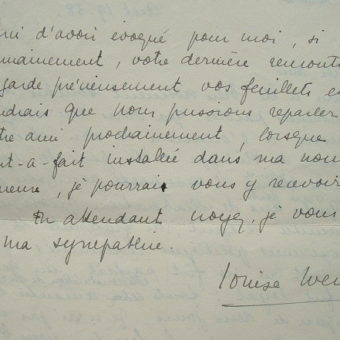 d'avoir évoqué pour moi, si
mainement, votre dernière rencontre
garde précieusement vos feuillets et
drais que nous puissions reparler
tre ami prochainement, lorsque
t-à-fait installée dans ma nou
meure, je pourrai vous y recevoir
En attendant voyez, je vous
ma sympathie.
Louise Wei